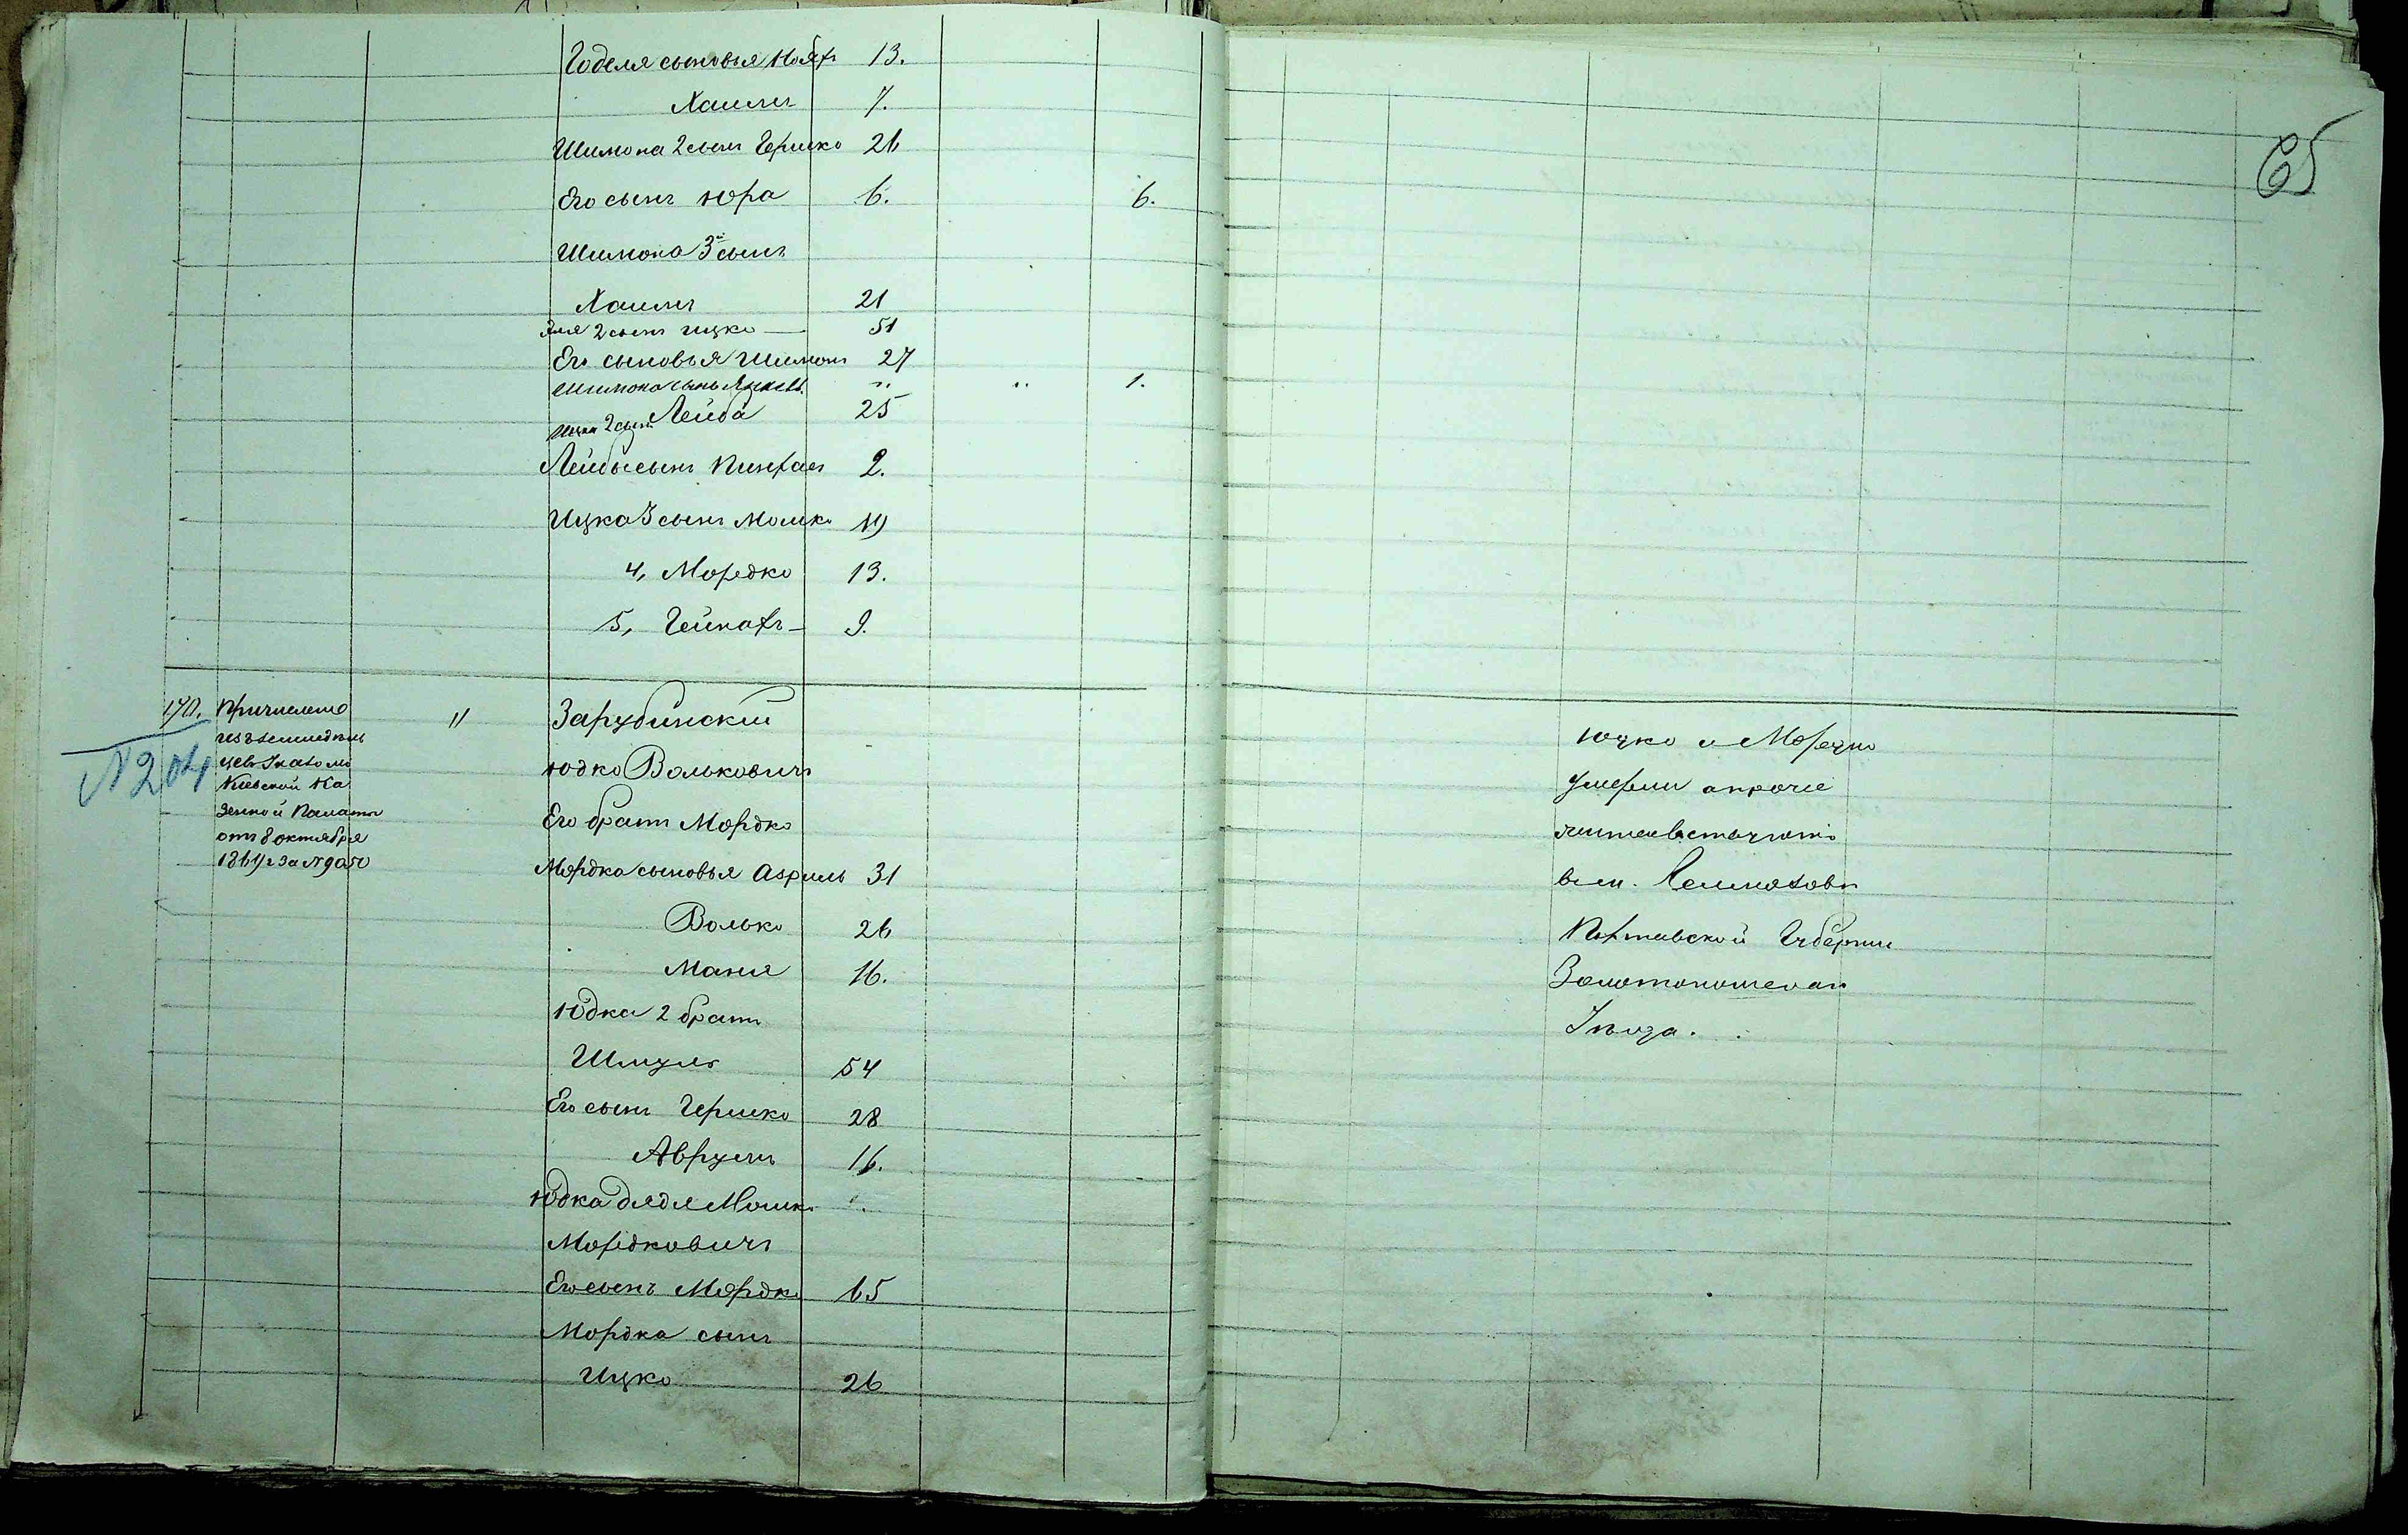 Годеля сыновья Ноях 13.
Хаимъ 7.
Шимона 2 сынъ Гершко 26
Его сынъ Юра 6. 6.
Шимона 3й сынъ
Хаимъ 21
2 сынъ Ицко — 51
Его сыновья Шимонъ 27
Шимона сынъ " " 1.
Ицка 2 сынъ Лейба 25
Лейбы сынъ Пинхас 2.
Ицка 3 сынъ Мошко 19
4, Мордко 13.
5, Гейнахъ — 9.
65
170. Причислено
изъ земледѣль
цевъ Указомъ
Киевской Ка
зенной Палаты
отъ 8 октября
186 г за №
№204
"
Зарубинский
Юдко Вольковичъ
Его братъ Мордко
Мордка сыновья Азриль 31
Волько 26
Маня 16.
Юдка 2 братъ
Шмуль 54
Его сынъ Гершко 28
Аврумъ 16.
Юдка дядя Мошко "
Мордковичъ
Его сынъ Мордко 65
Мордка сынъ
Ицко 26
Юдко и Мордко
умерли а прочие
жительствуютъ
в м.
Полтавской Губернии
Золотоношскаго
Уѣзда.